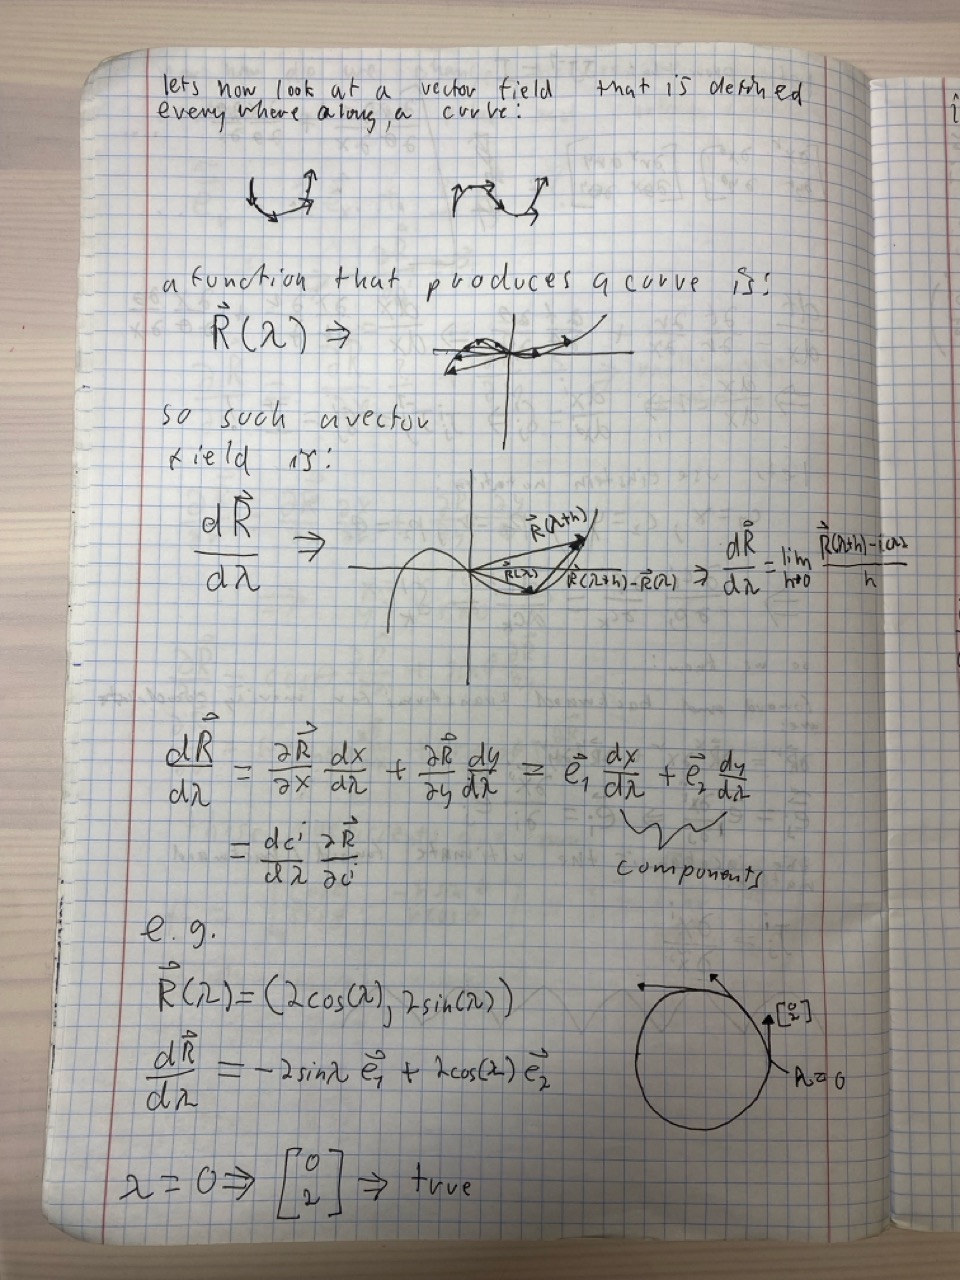 lets now look at a vector field that is defined
everywhere along a curve:
a function that produces a curve is:
R⃗(λ) ⇒
so such a vector
field is:
dR⃗/dλ ⇒
R⃗(λ+h)
R⃗(λ)
R⃗(λ+h)-R⃗(λ) ⇒ dR⃗/dλ = lim h→0 R⃗(λ+h)- /h
dR⃗/dλ = ∂R⃗/∂x dx/dλ + ∂R⃗/∂y dy/dλ = e⃗₁ dx/dλ + e⃗₂ dy/dλ
= dcⁱ/dλ ∂R⃗/∂cⁱ
components
e.g.
R⃗(λ)=(2cos(λ), 2sin(λ))
[0 2]
dR⃗/dλ = -2sinλ e⃗₁ + 2cos(λ) e⃗₂
λ=0
λ = 0 ⇒ [0 2] ⇒ true